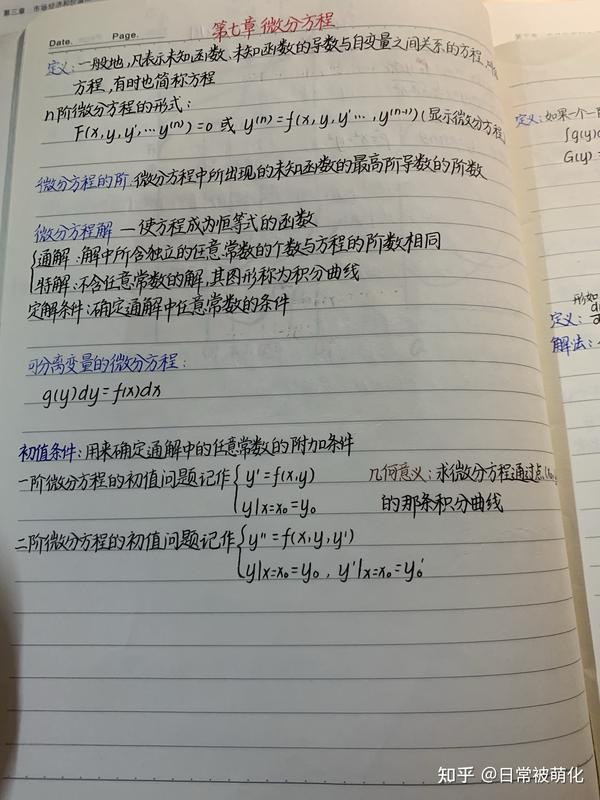 第三章 市场经济和
Date. Page.
第七章 微分方程
定义:一般地,凡表示未知函数、未知函数的导数与自变量之间关系的方程,
方程,有时也简称方程
n阶微分方程的形式:
F(x,y,y',…y⁽ⁿ⁾)=0 或 y⁽ⁿ⁾=f(x,y,y'…,y⁽ⁿ⁻¹⁾)(显示微分方程
微分方程的阶:微分方程中所出现的未知函数的最高阶导数的阶数
微分方程解 —使方程成为恒等式的函数
通解:解中所含独立的任意常数的个数与方程的阶数相同
特解:不含任意常数的解,其图形称为积分曲线
定解条件:确定通解中任意常数的条件
可分离变量的微分方程:
g(y)dy=f(x)dx
初值条件:用来确定通解中的任意常数的附加条件
一阶微分方程的初值问题记作{y'=f(x,y)
y|x=x₀=y₀
几何意义:求微分方程通过点
的那条积分曲线
二阶微分方程的初值问题记作{y''=f(x,y,y')
y|x=x₀=y₀,y'|x=x₀=y₀'
定义:如果一个一
∫g(y)
G(y)=
形如
定义:
解法:
知乎 @日常被萌化